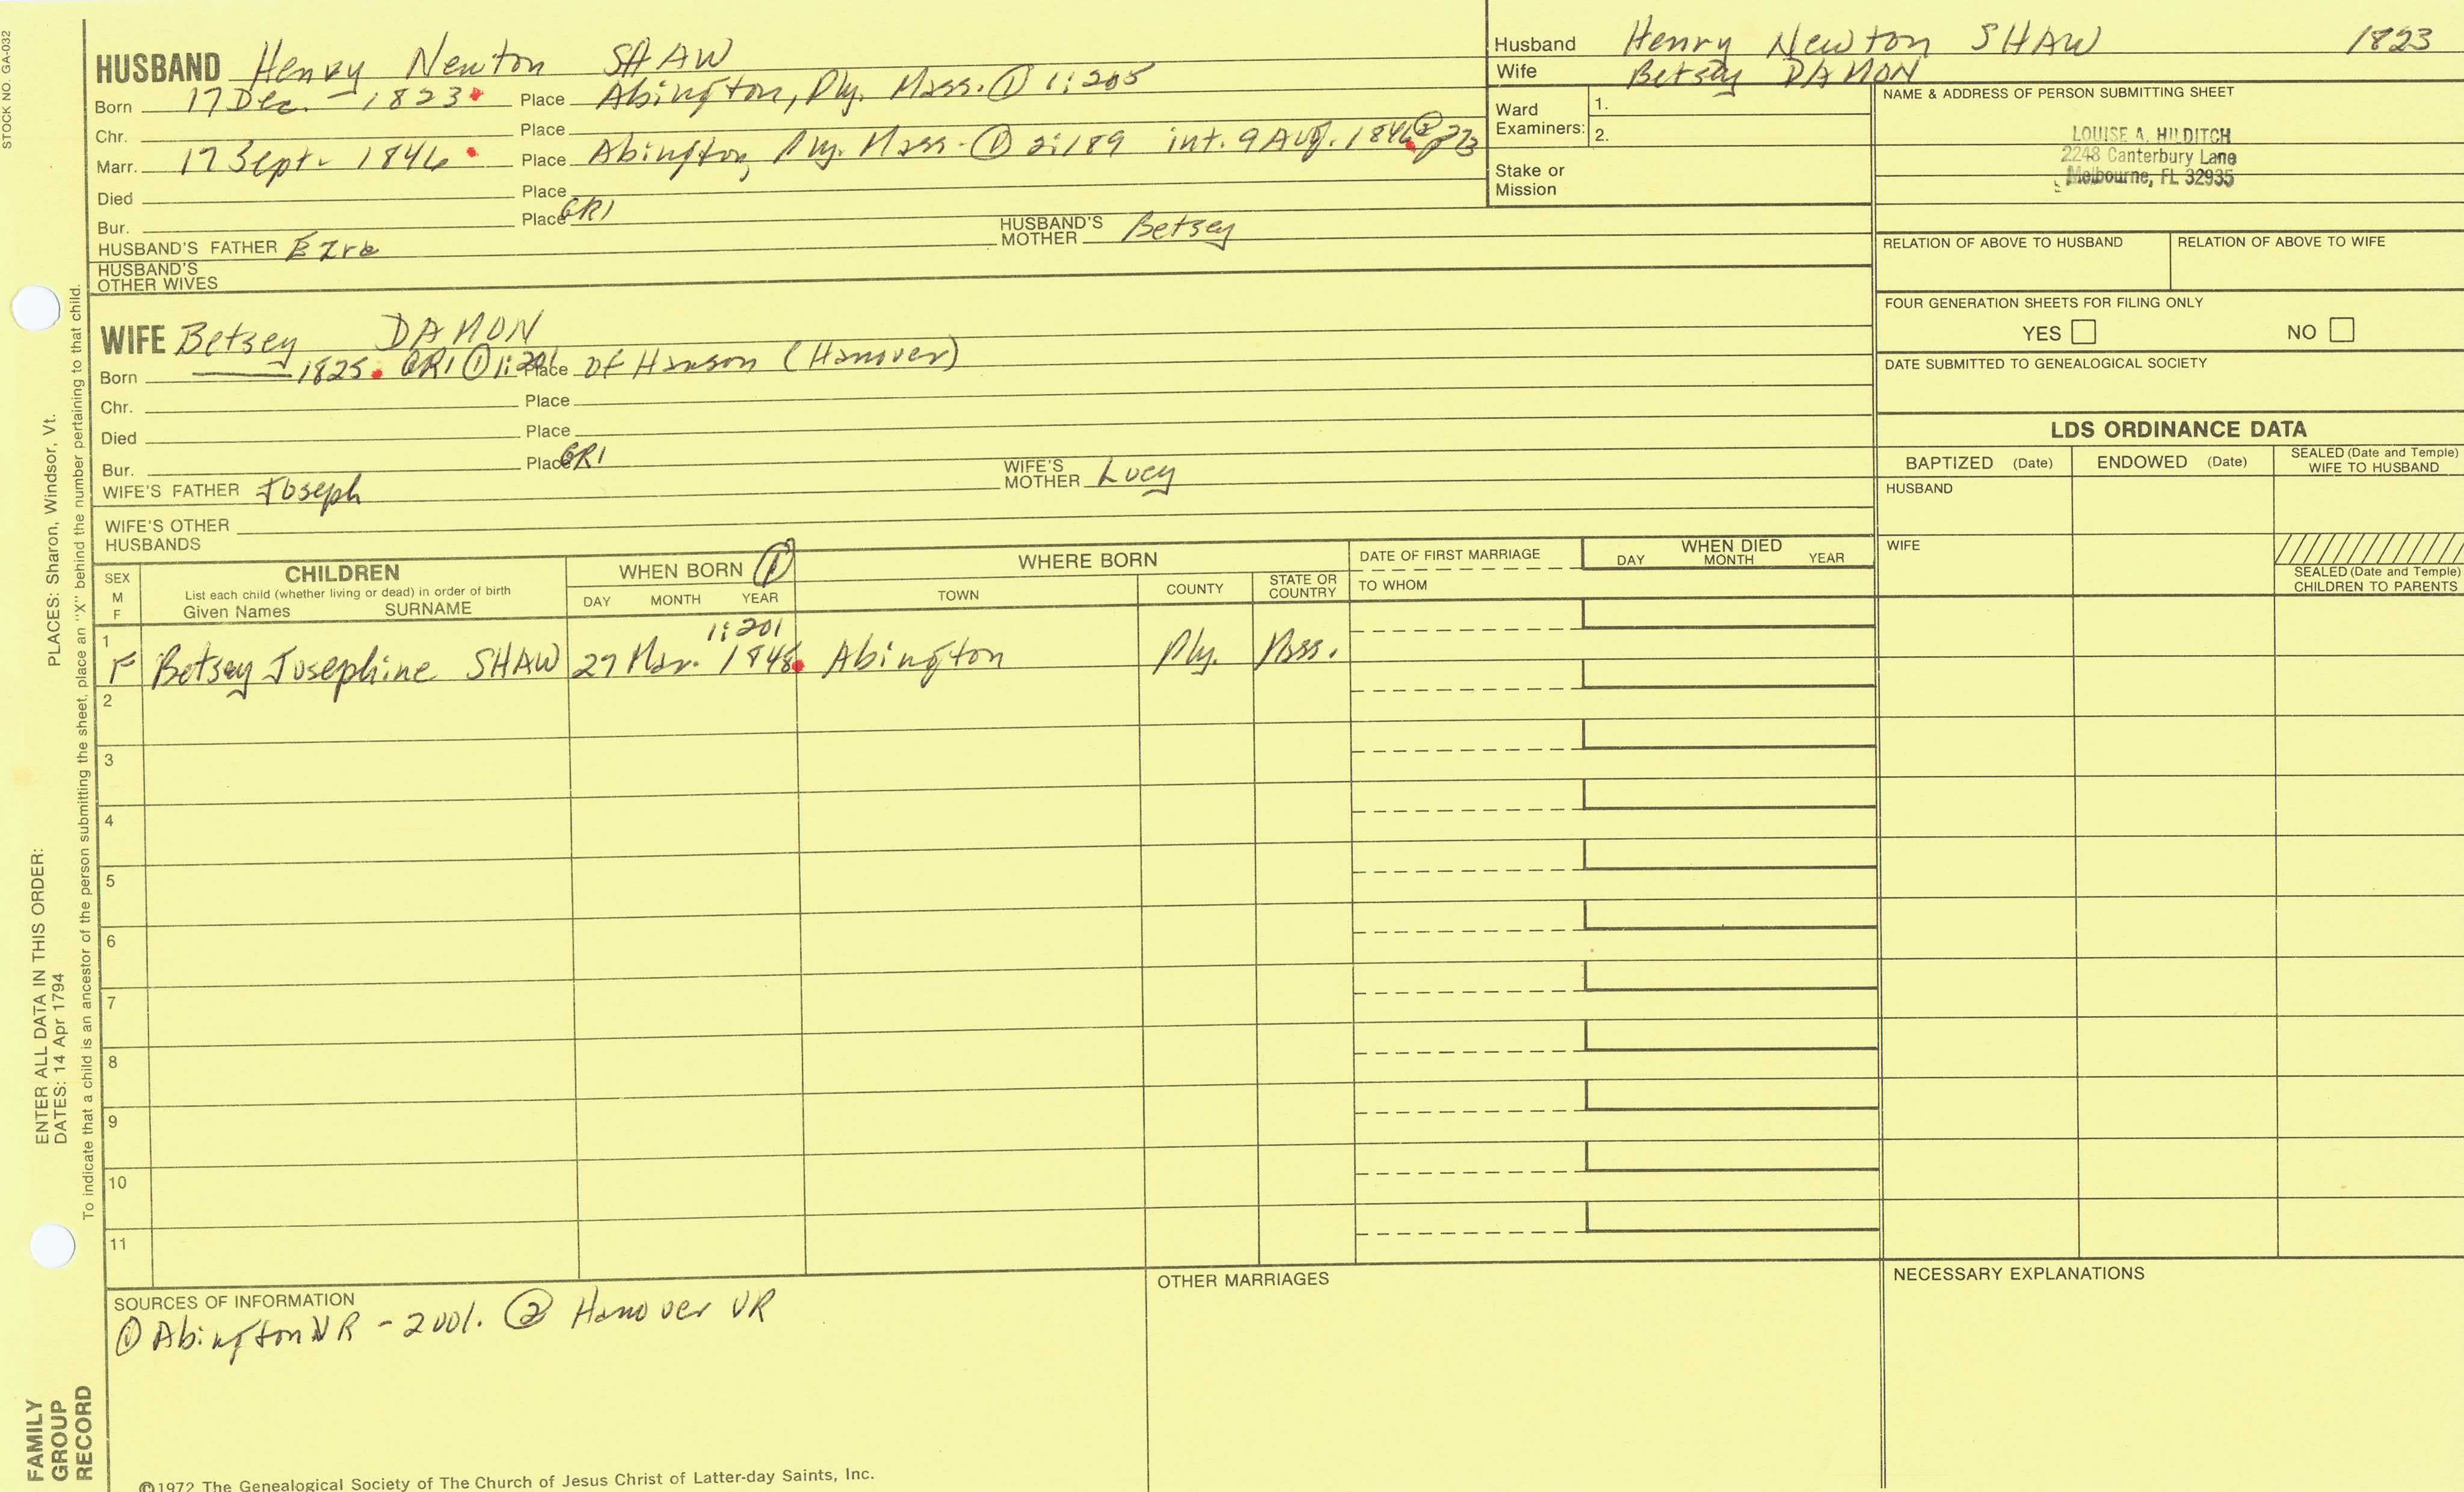 STOCK NO. GA-032
HUSBAND Henry Newton SHAW
Born 17 Dec. - 1823. Place Abington, Ply. Mass. ① 1:205
Chr. Place
Marr. 17 Sept. 1846. Place Abington, Ply. Mass. ① 2:189 int. 9 Aug. 1846 ② p23
Died Place
Bur. Place GR1
HUSBAND'S FATHER Ezra HUSBAND'S MOTHER Betsey
HUSBAND'S OTHER WIVES
WIFE Betsey DAMON
Born 1825. GR1 ① Place of Hanson (Hanover)
Chr. Place
Died Place
Bur. Place GR1
WIFE'S FATHER Joseph WIFE'S MOTHER Lucy
WIFE'S OTHER HUSBANDS
Husband Henry Newton SHAW 1823
Wife Betsey DAMON
Ward Examiners: 1.
2.
Stake or Mission
NAME & ADDRESS OF PERSON SUBMITTING SHEET
LOUISE A. HILDITCH
2248 Canterbury Lane
Melbourne, FL 32935
RELATION OF ABOVE TO HUSBAND RELATION OF ABOVE TO WIFE
FOUR GENERATION SHEETS FOR FILING ONLY
YES NO
DATE SUBMITTED TO GENEALOGICAL SOCIETY
LDS ORDINANCE DATA
BAPTIZED (Date) ENDOWED (Date) SEALED (Date and Temple) WIFE TO HUSBAND
HUSBAND
WIFE
SEALED (Date and Temple) CHILDREN TO PARENTS
SEX M F
CHILDREN
List each child (whether living or dead) in order of birth
Given Names SURNAME
WHEN BORN ①
DAY MONTH YEAR
WHERE BORN
TOWN COUNTY STATE OR COUNTRY
DATE OF FIRST MARRIAGE
TO WHOM
WHEN DIED
DAY MONTH YEAR
1 1:201
F Betsey Josephine SHAW 27 Mar. 1848. Abington Ply. Mss.
2
3
4
5
6
7
8
9
10
11
SOURCES OF INFORMATION
① Abington VR - 2 vol. ② Hanover VR
OTHER MARRIAGES
NECESSARY EXPLANATIONS
©1972 The Genealogical Society of The Church of Jesus Christ of Latter-day Saints, Inc.
FAMILY GROUP RECORD
ENTER ALL DATA IN THIS ORDER:
DATES: 14 Apr 1794
PLACES: Sharon, Windsor, Vt.
To indicate that a child is an ancestor of the person submitting the sheet, place an "X" behind the number pertaining to that child.